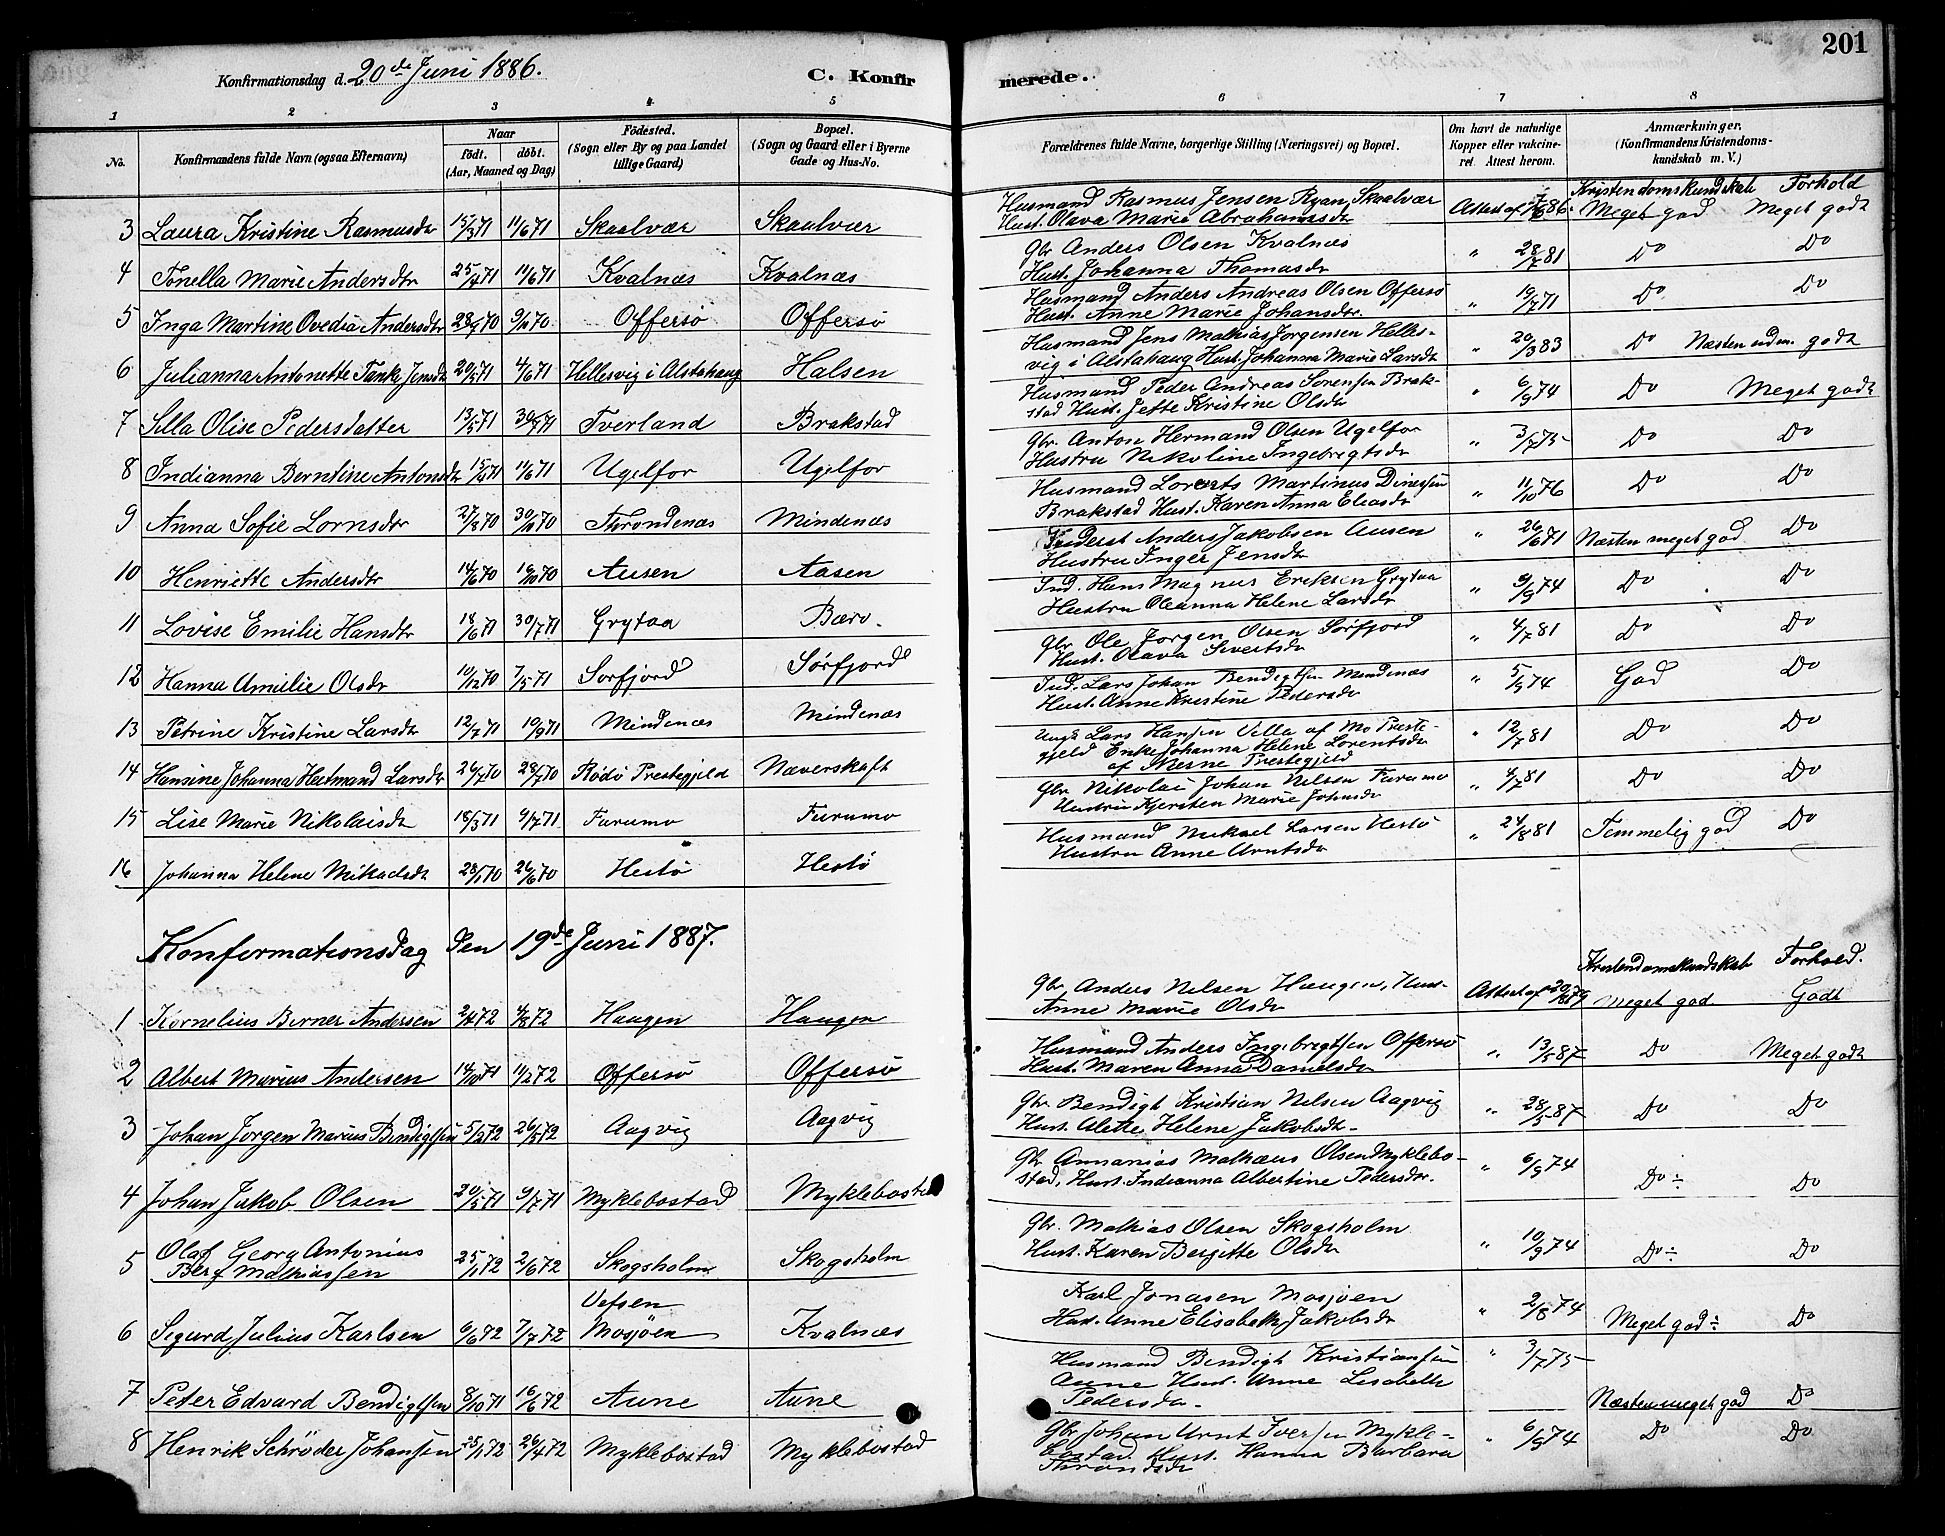 201
Konfirmationsdag d. 20de Juni 1886.
C. Konfirmerede.
1 2 3 4 5 6 7 8
No.
Konfirmandens fulde Navn (ogsaa Efternavn)
Naar
født. døbt.
(Aar, Maaned og Dag)
Fødested.
(Sogn eller By og paa Landet
tillige Gaard)
Bopæl.
(Sogn og Gaard eller i Byerne
Gade og Hus-No.
Forældrenes fulde Navne, borgerlige Stilling (Næringsvei) og Bopæl.
Om havt de naturlige
Kopper eller vakcine-
ret. Attest herom.
Anmærkninger.
(Konfirmandens Kristendoms-
kundskab m. V.)
Kristendomskundskab Forhold
Husmand Rasmus Jensen Ryan, Skaalvær
3 Laura Kristine Rasmusdr 15/3 71 11/6 71 Skaalvær Skaalvær Hust. Olava Marie Abrahamsdr Attest af 86. Meget god Meget godt
Gbr Anders Olsen Kvalnæs
4 Tonella Marie Andersdtr 25/4 71 11/6 71 Kvalnæs Kvalnæs Hust. Johanna Thomasdr " 28/7 81 Do Do
Husmand Anders Andreas Olsen Offersø
5 Inga Martine Ovedia Andersdtr 28/9 70 9/10 70 Offersø Offersø Hust. Anne Marie Johansdr. " 19/7 71 Do Do
Husmand Jens Mathias Jørgensen Helles-
6 Julianna Antonette Tanke Jensdr 20/5 71 4/6 71 Hellesvig i Alstahaug Halsen vig i Alstahaug Hust. Johanna Marie Larsdr " 20/3 83 Do Næsten udm. godt
Husmand Peder Andreas Sørensen Brak-
7 Silla Olise Pedersdatter 13/5 71 30/7 71 Tverland Brakstad stad Hust. Jette Kristine Olsdr " 6/9 74 Do Meget godt
Gbr Anton Hermand Olsen Ugelfor
8 Indianna Berntine Antonsdr 15/4 71 11/6 71 Ugelfor Ugelfor Hustru Nikoline Ingebrigtsdr " 3/7 75 Do Do
Husmand Lorents Martinus Dinessen
9 Anna Sofie Lornsdtr 27/8 70 30/10 70 Throndenæs Mindenæs Brakstad Hust. Karen Anna Eliasdr " 11/10 76 Do Do
Anders Jakobsen Ausen
10 Henriette Andersdtr 14/6 70 16/10 70 Ausen Aasen Hustru Inger Jensdr " 26/6 71 Næsten meget god Do
Ind. Hans Magnus Eriksen Grytaa
11 Lovise Emilie Hansdtr 18/6 71 30/7 71 Grytaa Bærø. Hustru Oleanna Helene Larsdr " 9/9 74 Do Do
Gbr Ole Jørgen Olsen Sørfjord
12 Hanna Amilie Olsdr 10/12 70 7/5 71 Sørfjord Sørfjord Hust. Olava Sivertsdr " 4/7 81 Do Do
Ind. Lars Johan Bendigtsen Mindenæs
13 Petrine Kristine Larsdtr 12/7 71 10/9 71 Mindenæs Mindenæs Hust. Anne Kristine Pedersdr " 5/9 74 God Do
Ungk. Lars Hansen Villa af Mo Præste-
gjeld Enke Johanna Helene Lorentsdr
14 Hansine Johanna Hartmand Larsdr 26/7 70 28/7 70 Rødø Prestegjeld Næverskaft af Nesne Prestegjeld " 12/7 81 Do Do
Gbr Nikolai Johan Nilsen Furumo
15 Lise Marie Nikolaisdr 18/3 71 9/7 71 Furumo Furumo Hustru Kjersten Marie Johnsdr " 4/7 81 Do Do
Husmand Mikael Larsen Hestø
16 Johanna Helene Mikalsdr 28/1 70 26/6 70 Hestø Hestø Hustru Anne Arntsdr " 24/8 81 Temmelig god Do
Konfermationsdag den 19de Juni 1887.
Kristendomskundskab Forhold.
Gbr. Anders Nelsen Haugen, Hust.
1 Kornelius Berner Andersen 2/4 72 4/8 72 Haugen Haugen Anne Marie Olsdr Attest af Meget god Godt
Husmand Anders Ingebrigtsen Offersø
2 Albert Marius Andersen 14/10 71 11/2 72 Offersø Offersø Hust. Maren Anna Danielsdr " 13/5 87 Do Meget godt
Gbr Bendigt Kristian Nilsen Aagvig
3 Johan Jørgen Marius Bendigtsen 5/2 72 26/5 72 Aagvig Aagvig Hust. Alette Helene Jakobsdr " 28/5 87 Do Do
Gbr Annanias Mathæus Olsen Myklebo-
4 Johan Jakob Olsen 20/5 71 9/7 71 Myklebostad Myklebostad stad, Hust. Indianna Albertine Pedersdr. " 6/9 74 Do ÷ Do
Olaf Georg Antonius Gbr. Mathias Olsen Skogsholm
5 Berg Mathiassen 25/1 72 2/6 72 Skogsholm Skogsholm Hust. Karen Bergitte Olsdr " 10/9 74 Do ÷ Do
Vefsen Karl Jonasen Mosjøen
6 Sigurd Julius Karlsen 6/6 72 7/7 72 Mosjøen Kvalnæs Hust. Anne Elisabeth Jakobsdr " 2/8 74 Meget god ÷ Do
Husmand Bendigt Kristiansen
Aune Hust. Anne Lisabeth
7 Peter Edvard Bendigtsen 8/10 71 16/6 72 Aune Aune Pedersdr. " 3/7 75 Næsten meget god Do
Gbr Johan Arnt Iversen Mykle-
8 Henrik Schrøder Johansen 25/1 72 26/4 72 Myklebostad Myklebostad bostad Hust. Hanna Barbara " 6/9 74 Do Do
Throndsdr